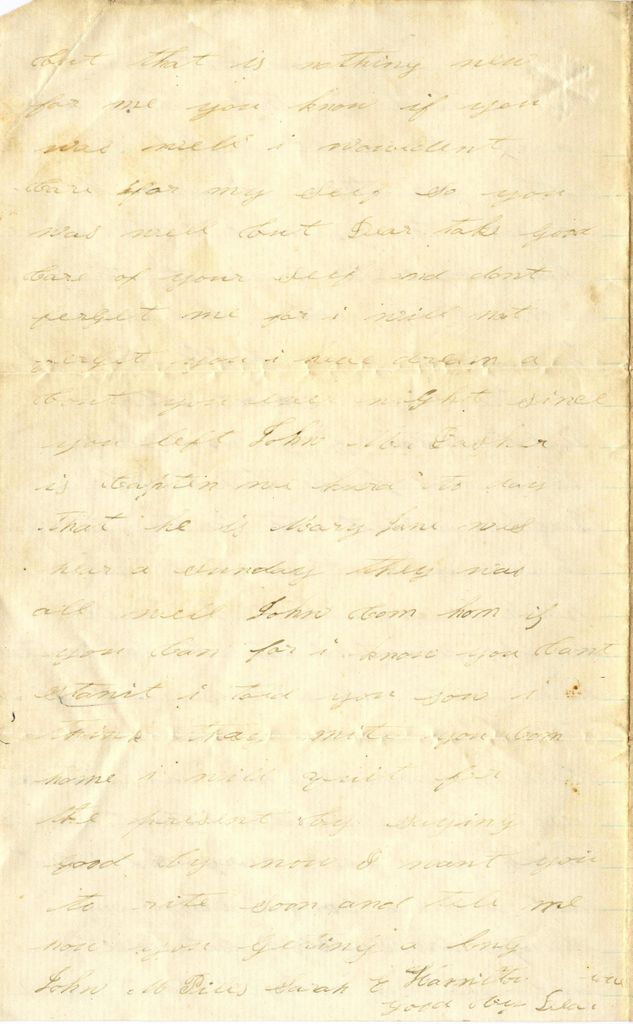 but that is nothing new
for me you know if you
was well i wouldent
Care for my self so you
was well but Dear take good
Care of your self and dont
forget me for i will not
forget you i have dream a
bout you ever night since
you left John
is Captin we herd to day
that he is Mary Jane was
hear a sunday they was
all well John Com hom if
you Can for i know you Cant
stanit i told you sow i
think they mite you Com
home i will quit for
the present by saying
good by now I want you
to rite soon and tell me
how you geting a long
John M Sarah E
good by Dear